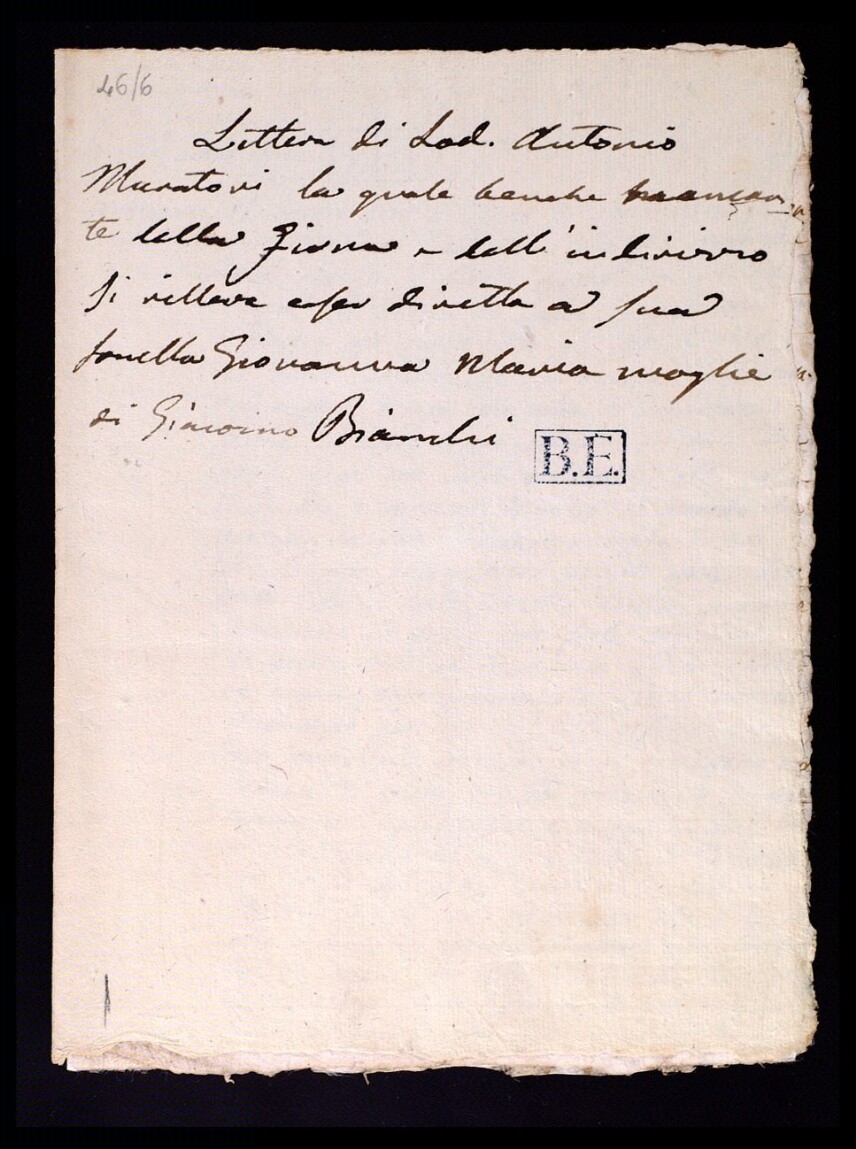 46/6
Lettera di Lod. Antonio
Muratori la quale benche mancan-
te della Firma e dell' indirizzo
si rilleva esser diretta a sua
sorella Giovanna Maria moglie
di Giacomo Bianchi
B.E.